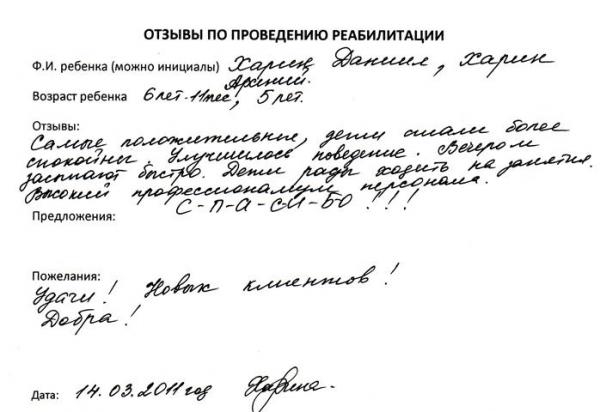 ОТЗЫВЫ ПО ПРОВЕДЕНИЮ РЕАБИЛИТАЦИИ
Ф.И. ребенка (можно инициалы) Харин Даниил, Харин
Арсений.
Возраст ребенка 6 лет. 11 мес, 5 лет.
Отзывы:
Самые положительные, дети стали более
спокойны. Улучшилось поведение. Вечером
засыпают быстро. Дети рады ходить на занятия.
Высокий профессионализм персонала.
С-П-А-СИ-БО!!!
Предложения:
Пожелания:
Удачи! Новых клиентов!
Добра!
Дата: 14.03.2011 год Харина.